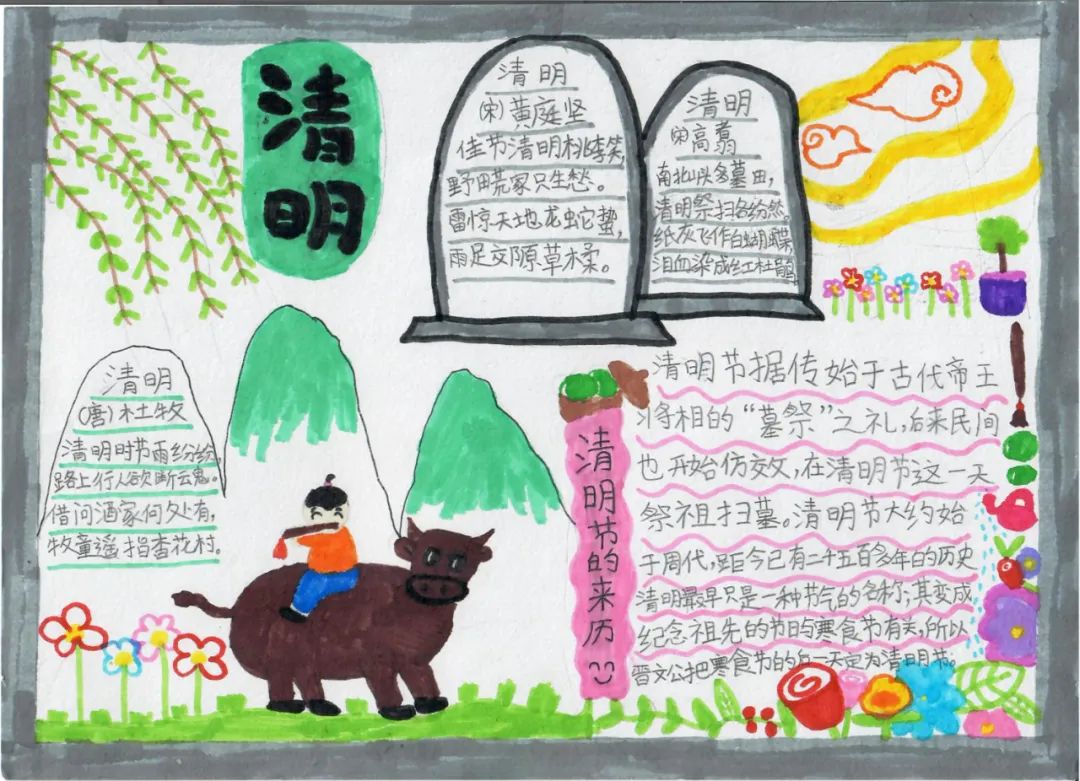 清明
清明
(宋)黄庭坚
佳节清明桃李笑,
野田荒家只生愁。
雷惊天地龙蛇蛰,
雨足交隙原草柔。
清明
(宋)高翥
南北山头多墓田,
清明祭扫各纷然。
纸灰飞作白蝴蝶
泪血染成红杜鹃
清明
(唐)杜牧
清明时节雨纷纷,
路上行人欲断魂。
借问酒家何处有,
牧童遥指杏花村。
清明节的来历
清明节据传始于古代帝王
将相的“墓祭”之礼,后来民间
也开始仿效,在清明节这一天
祭祖扫墓。清明节大约始
于周代,距今已有二千五百多年的历史
清明最早只是一种节气的名称;其变成
纪念祖先的节日与寒食节有关,所以
晋文公把寒食节的后一天定为清明节。